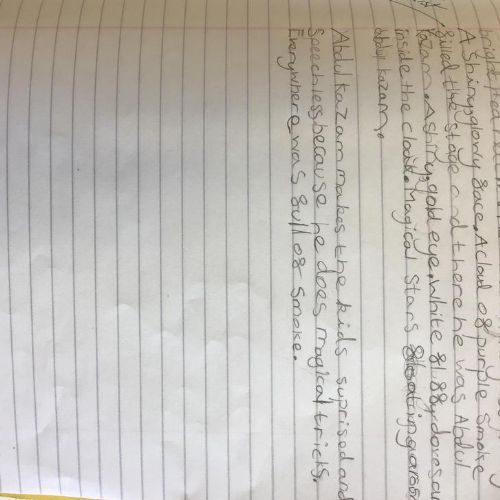 bright
A shiny, glowy face. A cloud of purple smoke
filled the stage and there he was Abdul
Kazam. A shiny, gold eye, White fluffy doves
inside the cloak. Magical Stars floating
abdul kazam.
Abdul Kazam makes the kids suprised and
Speechless because he does magical tricks.
Everywhere was full of smoke.